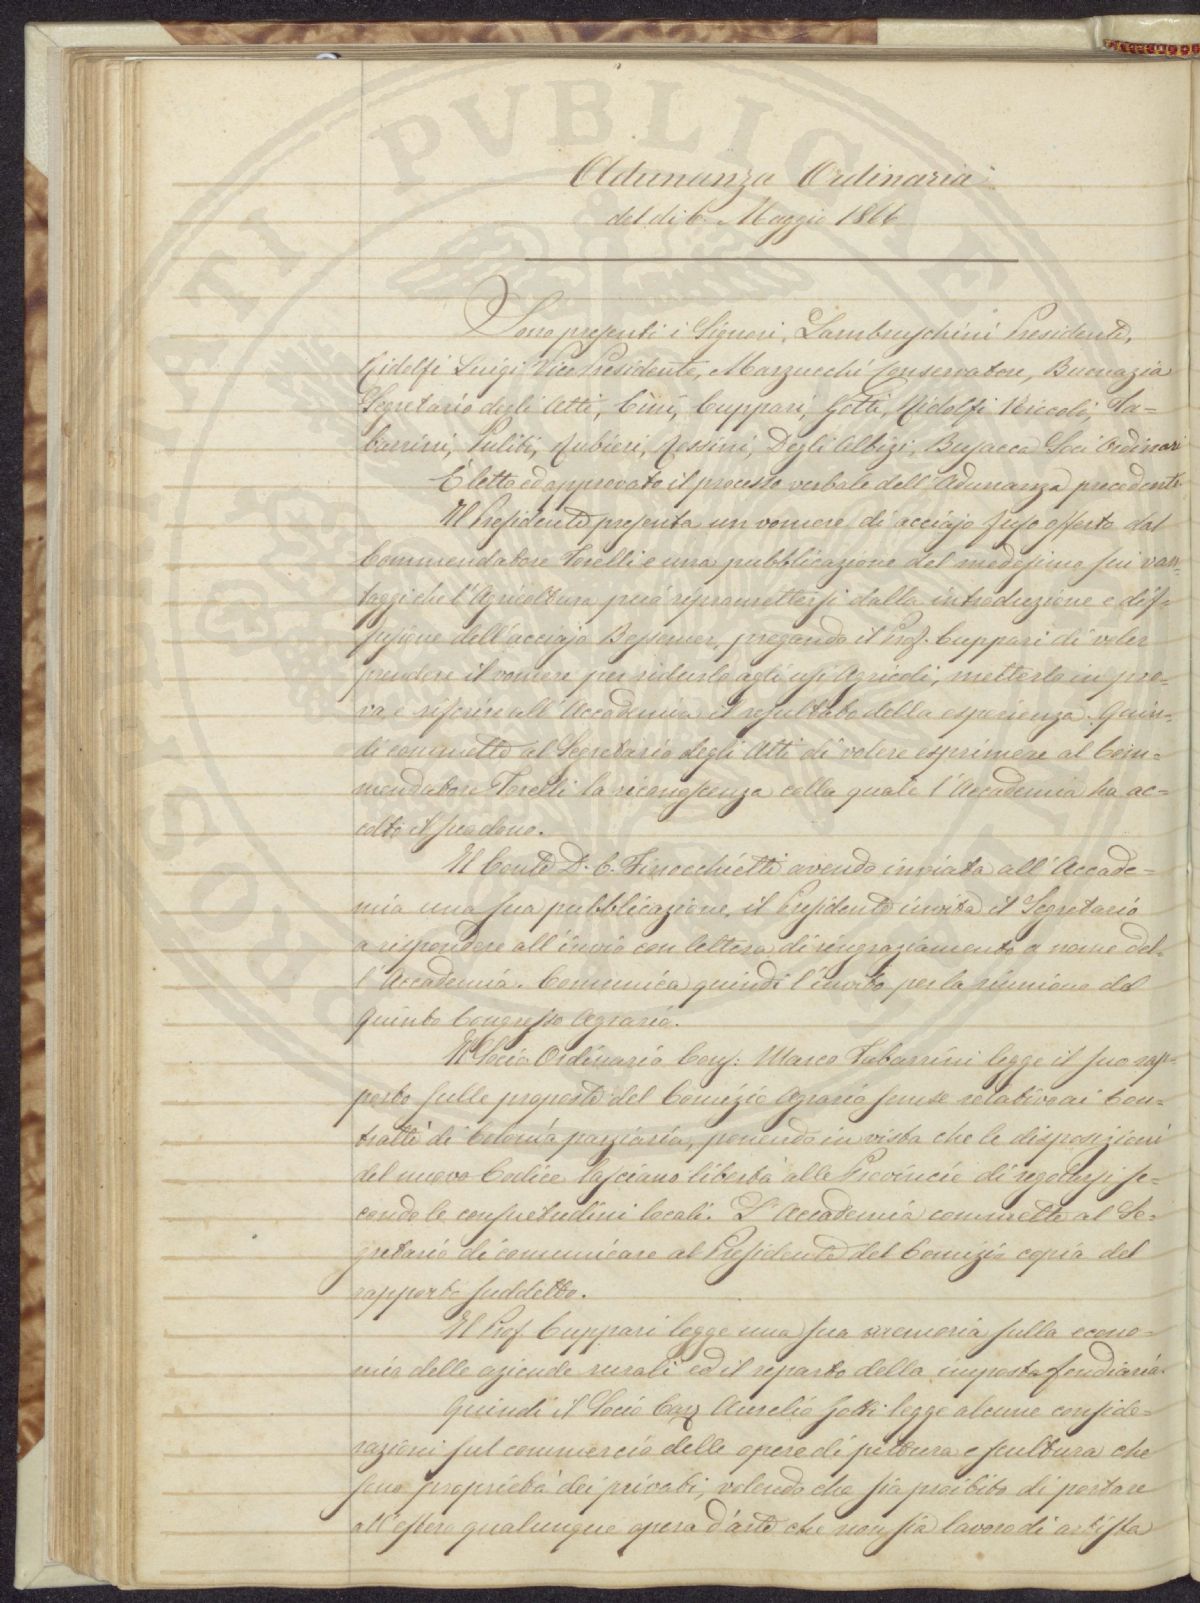 Adunanza Ordinaria
del di 6. Maggio 1866
Sono presenti i Signori, Lambruschini Presidente,
Ridolfi Luigi Vice Presidente, Marzucchi Conservatore, Buonazia
Segretario degli Atti, Cini, Cuppari, Gotti, Ridolfi Niccolò, Ta=
barrini, Puliti, Rubieri, Rossini, Degli Albizi, Busacca Soci Ordinari
È letto ed approvato il processo verbale dell'Adunanza precedente
Il Presidente presenta un vomere di acciajo fuso offerto dal
Commendatore Torelli e una pubblicazione del medesimo sui van=
taggi che l'Agricoltura può ripromettersi dalla introduzione e dif=
fusione dell'acciajo Bessemer, pregando il Prof. Cuppari di voler
prendere il vomere per ridurlo agli usi Agricoli, metterlo in pro=
va, e riferire all'Accademia il resultato della esperienza. Quin=
di commette al Segretario degli Atti di volere esprimere al Com=
mendatore Torelli la riconoscenza colla quale l'Accademia ha ac=
colto il suo dono.
Il Conte D. C. Finocchietti avendo inviata all'Accade=
mia una sua pubblicazione, il Presidente invita il Segretario
a rispondere all'invio con lettera di ringraziamento a nome del=
l'Accademia. Comunica quindi l'invito per la riunione del
Quinto Congresso Agrario.
Il Socio Ordinario Cons: Marco Tabarrini legge il suo rap=
porto sulle proposte del Comizio Agrario senese relativo ai Con=
tratti di Colonia parziaria, ponendo in vista che le disposizioni
del nuovo Codice lasciano libertà alle Provincie di regolarsi se=
condo le consuetudini locali. L'Accademia commette al Se=
gretario di comunicare al Presidente del Comizio copia del
rapporto suddetto.
Il Prof. Cuppari legge una sua memoria sulla econo=
mia delle aziende rurali ed il reparto della imposta fondiaria.
Quindi il Socio Cav Aurelio Gotti legge alcune conside=
razioni sul commercio delle opere di pittura e scultura che
sono proprietà dei privati, volendo che sia proibito di portare
all'estero qualunque opera d'arte che non sia lavoro di artista
PVBLICAE